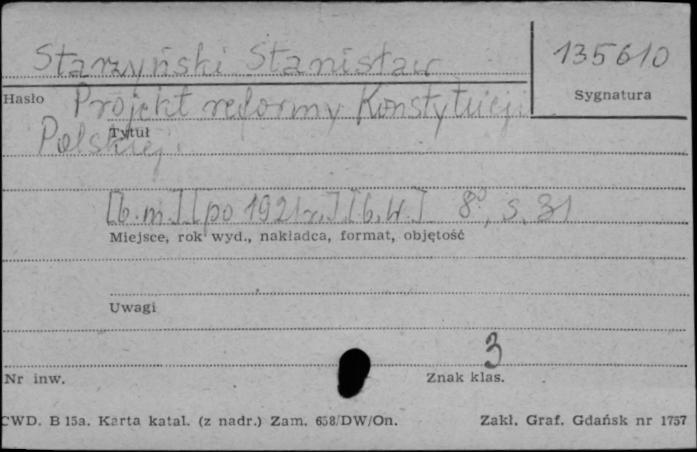 Starzyński Stanisław
135610
Hasło
Sygnatura
Projekt reformy Konstytucji
Tytuł
Polskiej.
[b.m.] [po 1921 r.] [b.w.] 8°, s. 31
Miejsce, rok wyd., nakładca, format, objętość
Uwagi
3
Nr inw.
Znak klas.
CWD. B 15a. Karta katal. (z nadr.) Zam. 658/DW/On.
Zakł. Graf. Gdańsk nr 1757